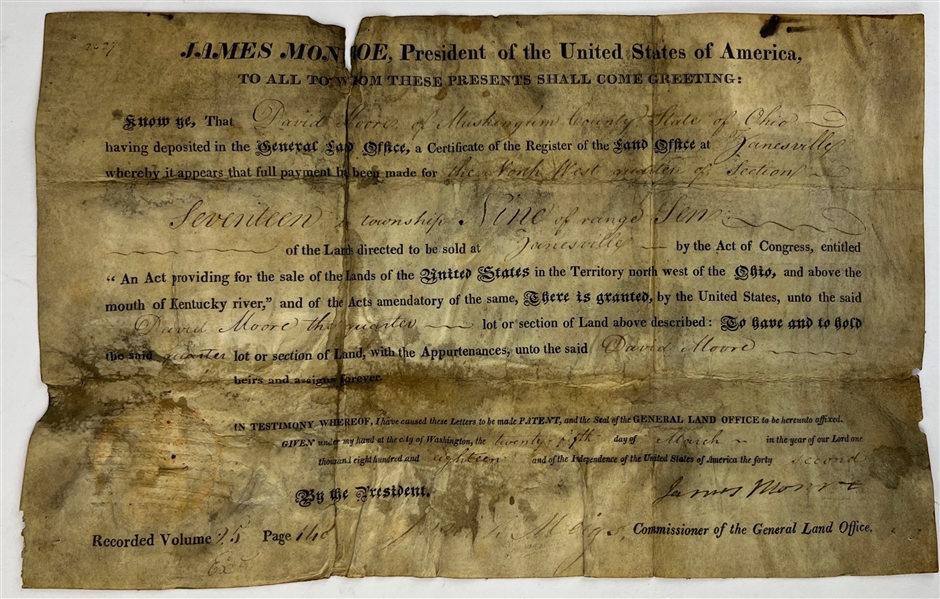 JAMES MONROE, President of the United States of America,
TO ALL TO WHOM THESE PRESENTS SHALL COME GREETING:
Know ye, That David Moore of Muskingum County State of Ohio
having deposited in the General Land Office, a Certificate of the Register of the Land Office at Zanesville
whereby it appears that full payment been made for the North West quarter of Section
Seventeen in township Nine of range Ten
of the Lands directed to be sold at Zanesville by the Act of Congress, entitled
"An Act providing for the sale of the Lands of the United States in the Territory north west of the Ohio, and above the
mouth of Kentucky river," and of the Acts amendatory of the same, There is granted, by the United States, unto the said
David Moore the quarter lot or section of Land above described: To have and to hold
the said quarter lot or section of Land, with the Appurtenances, unto the said David Moore
heirs and assigns forever.
IN TESTIMONY WHEREOF, I have caused these Letters to be made PATENT, and the Seal of the GENERAL LAND OFFICE to be hereunto affixed.
GIVEN under my hand at the city of Washington, the twenty fifth day of March in the year of our Lord one
thousand eight hundred and eighteen and of the Independence of the United States of America the forty second
By the President. James Monroe
Josiah Meigs, Commissioner of the General Land Office.
Recorded Volume 25 Page
Ex